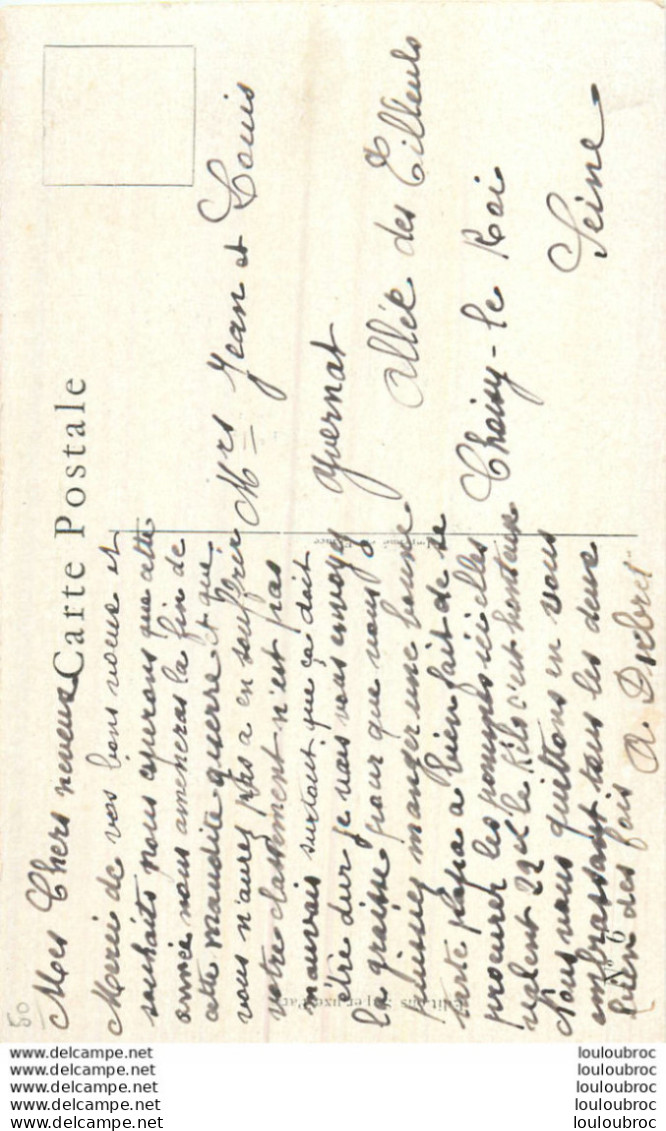 Carte Postale
Mes Chers neveux
Merci de vos bons voeux et
souhaits nous esperons que cette
année nous amèneras la fin de
cette maudite guerre et que
vous n'aurez pas a en souffrir
votre classement n'est pas
mauvais surtout que ça doit
être dur je vais vous envoyez
la graisse pour que vous
puissiez manger une bonne
tarte papa a bien fait de se
procurer les pommes ici elles
valent 22f le kilo c'est honteux
Nous vous quittons en vous
embrassant tous les deux
bien des fois
Mrs Jean et Louis
Yvernat
Allée des Tilleuls
Choisy-le Roi
Seine
N° 6
80
www.delcampe.net
www.delcampe.net
www.delcampe.net
www.delcampe.net
www.delcampe.net
louloubroc
louloubroc
louloubroc
louloubroc
louloubroc